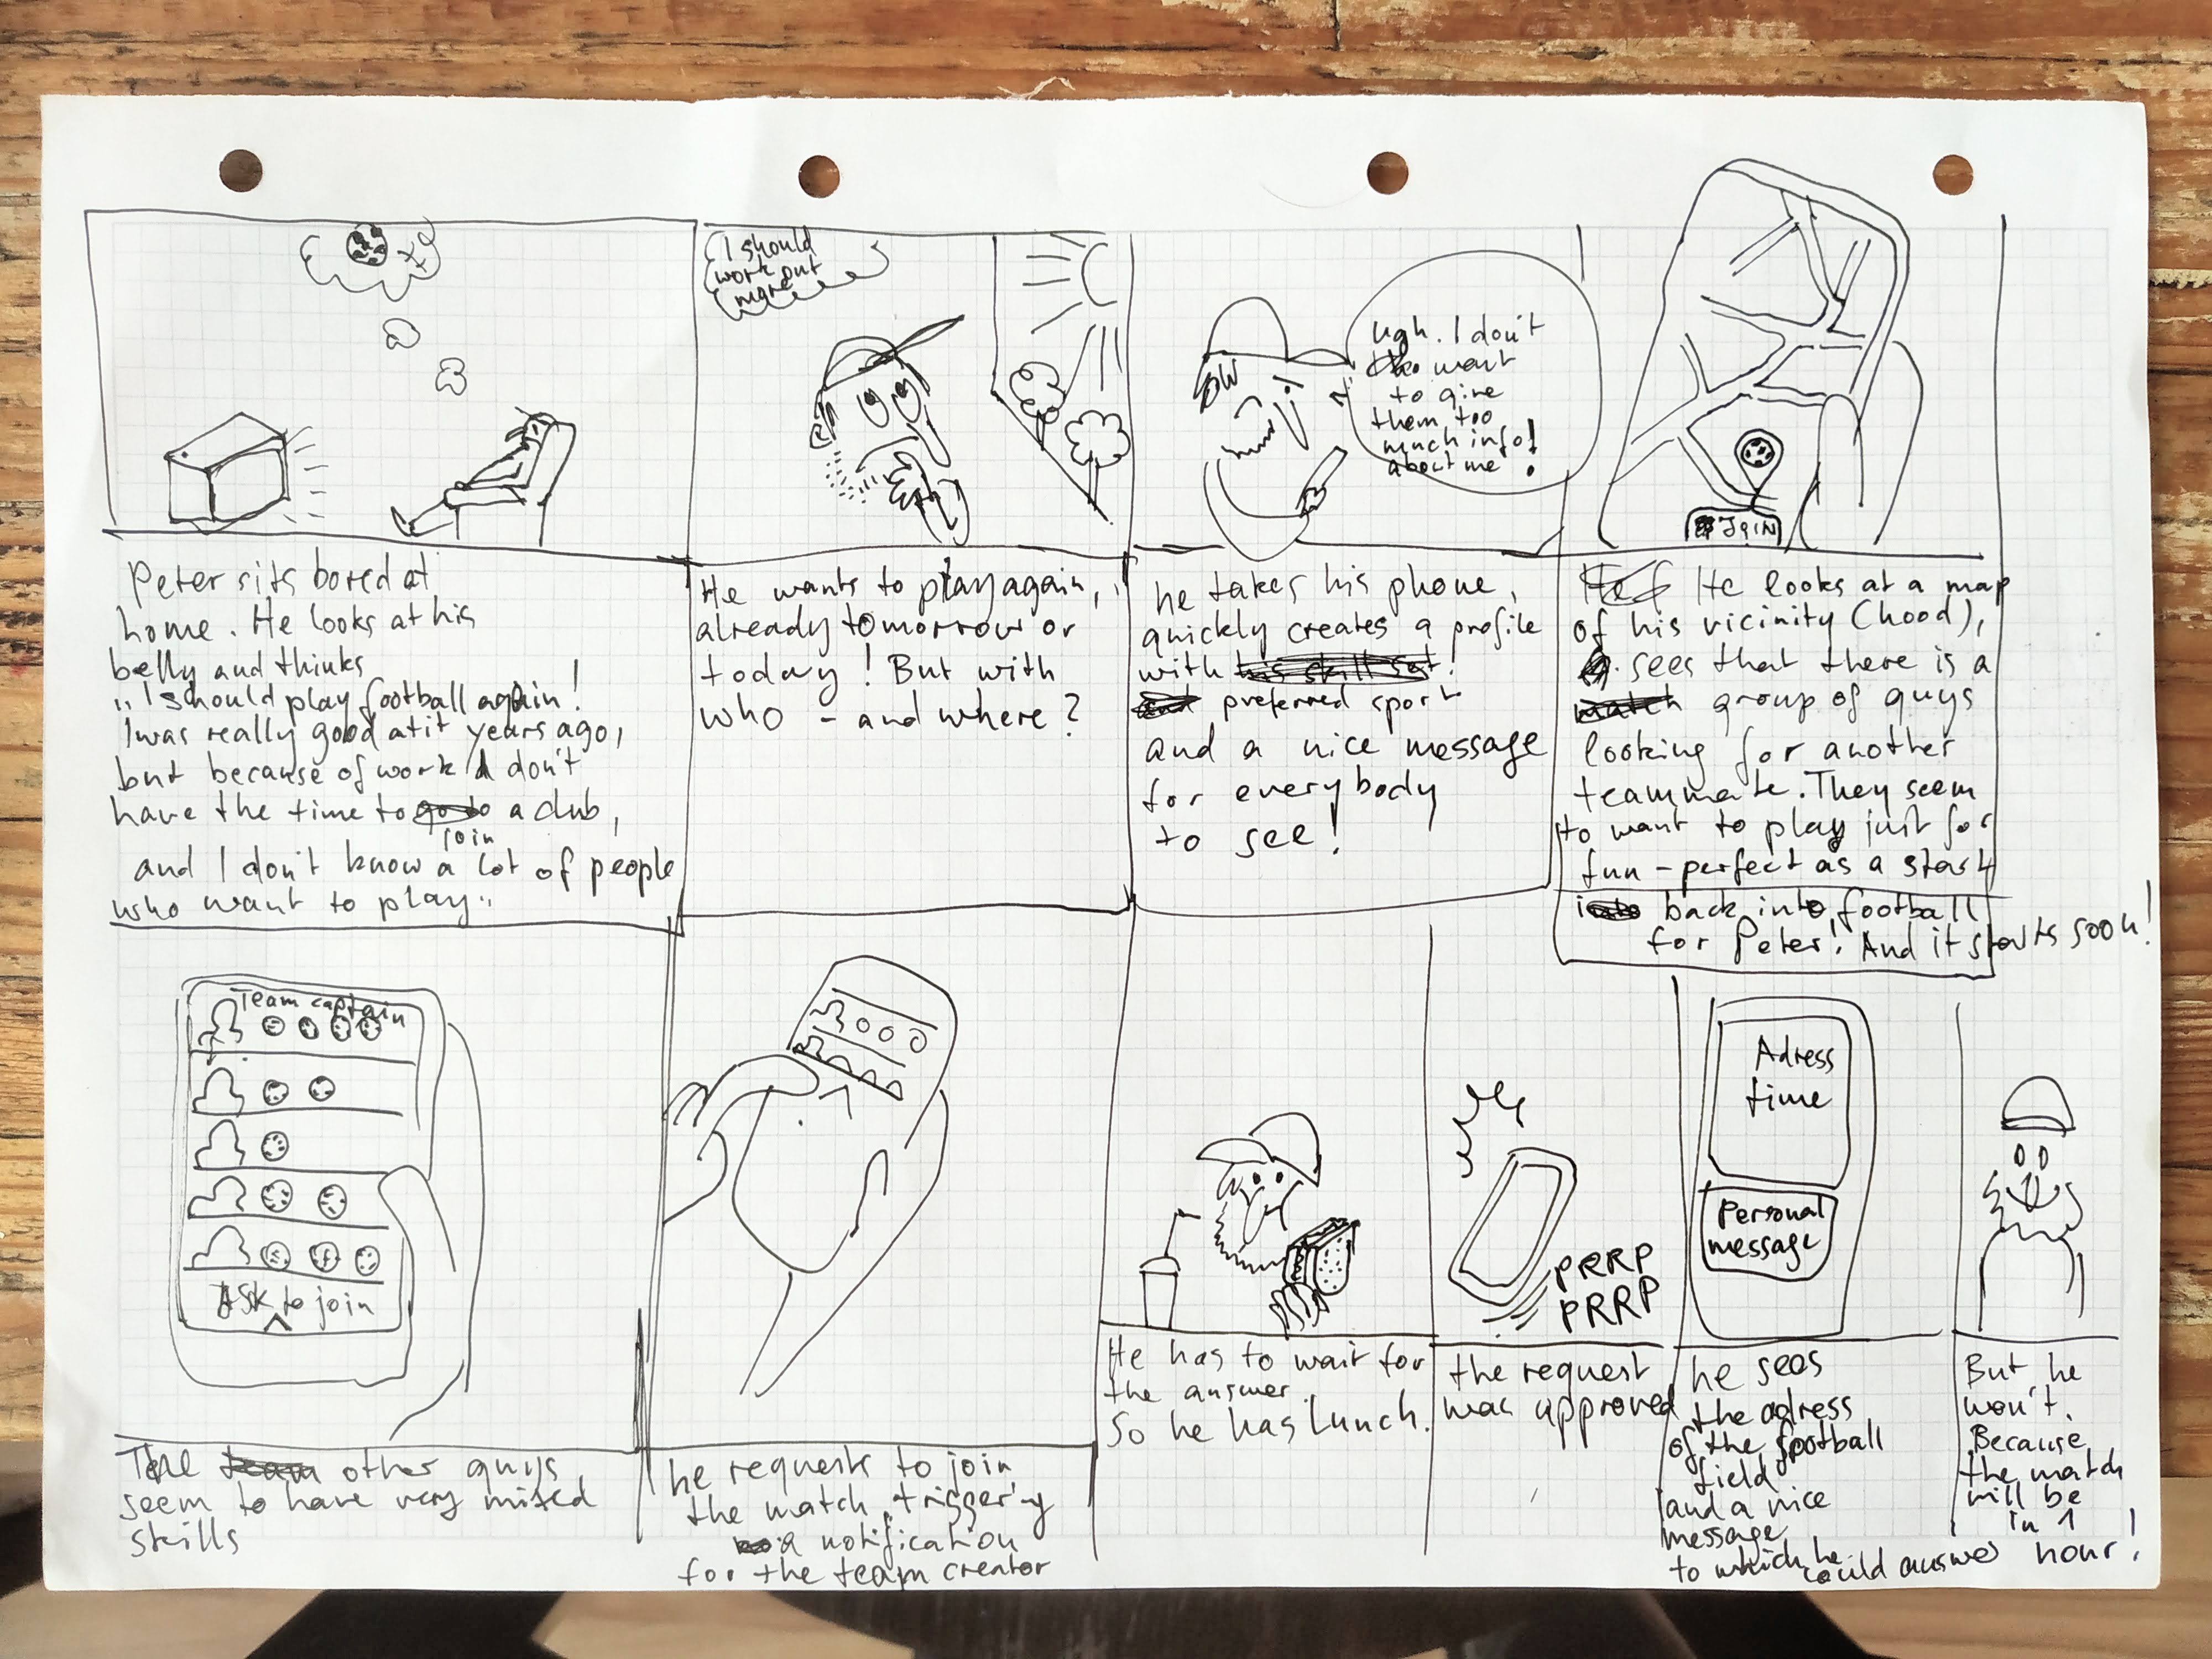 I should
work out
more
Ugh. I don't
want
to give
them too
much info!
about me!
JOIN
Peter sits bored at
home. He looks at his
belly and thinks
„I should play football again!
I was really good at it years ago,
but because of work I don't
have the time to join a club,
and I don't know a lot of people
who want to play„
He wants to play again,
already tomorrow or
today! But with
who - and where?
he takes his phone,
quickly creates a profile
with his skill set!
and preferred sport
and a nice message
for everybody
to see!
He looks at a map
of his vicinity (hood),
sees that there is a
match group of guys
looking for another
teammate. They seem
to want to play just for
fun - perfect as a start
back into football
for Peter! And it starts soon!
Team captain
Ask to join
The team other guys
seem to have very mixed
skills
he requests to join
the match, triggering
a notification
for the team creator
He has to wait for
the answer.
So he has lunch.
PRRP
PRRP
the request
was approved
Adress
time
Personal
message
he sees
the adress
of the football
field
and a nice
message
to which he
could answer
But he
won't.
Because
the match
will be
in 1
hour!